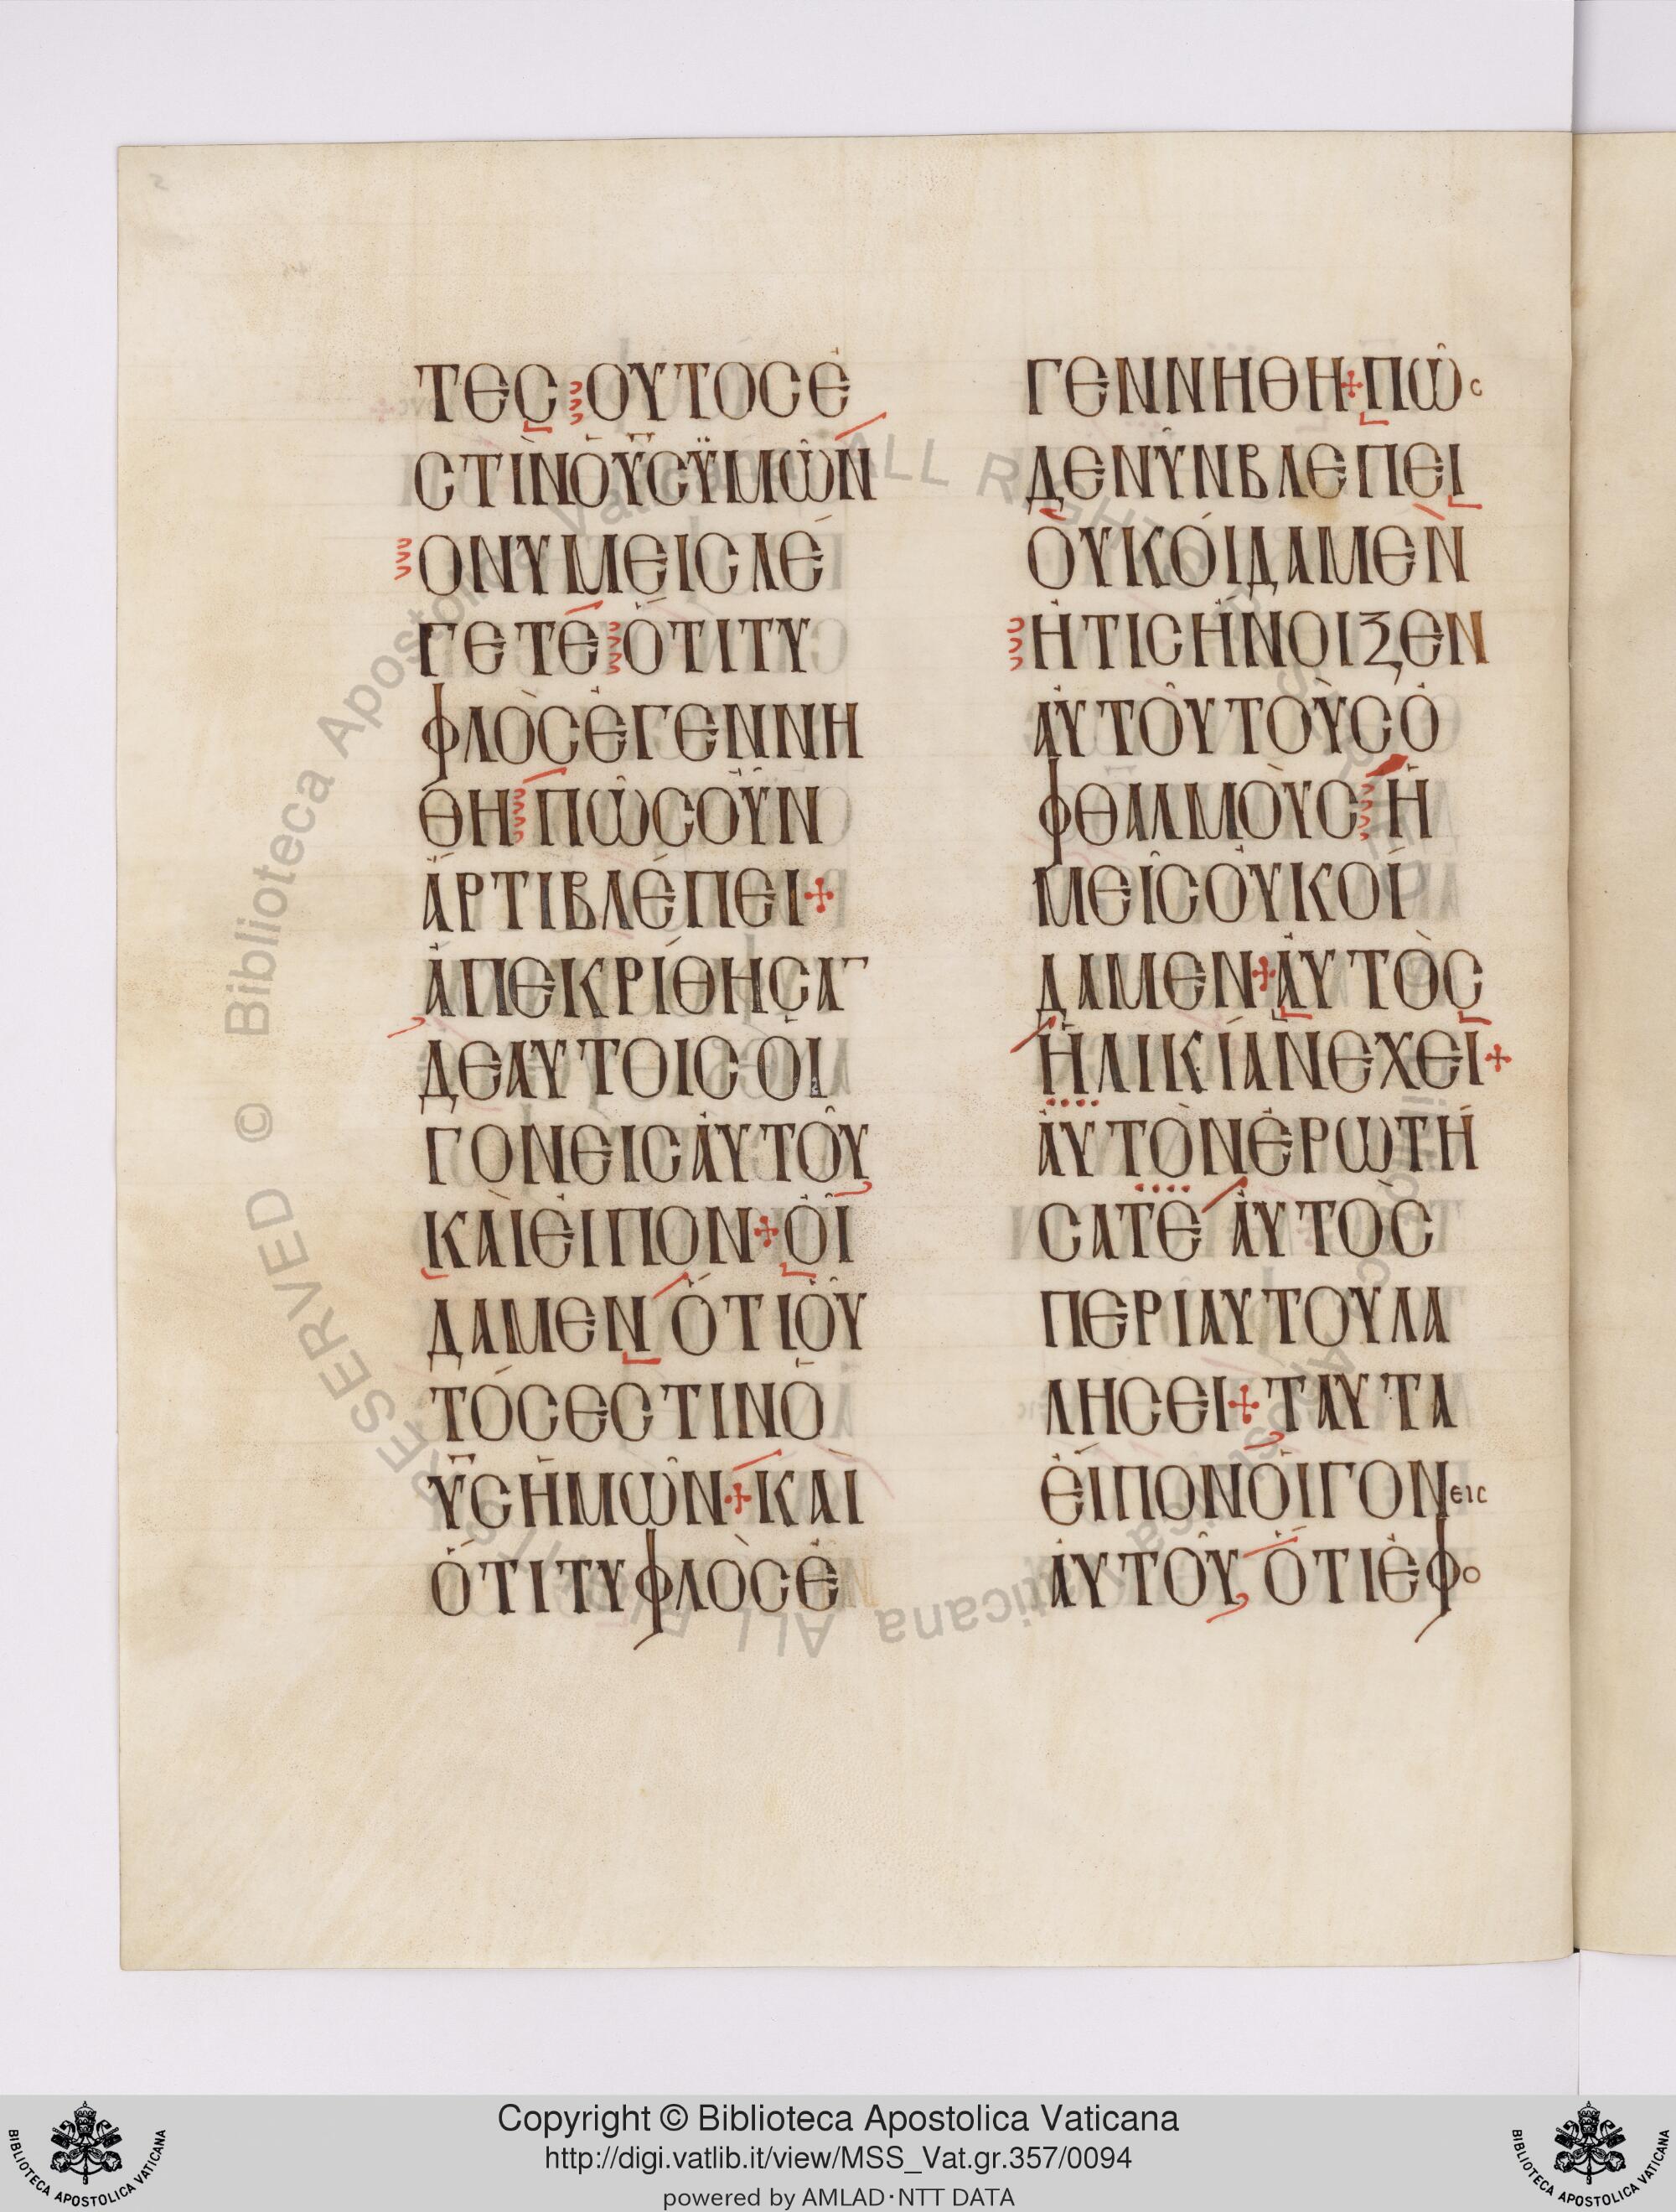 ΤΕϹ ΟΥΤΟϹἘ
ϹΤῚΝΟὙϹΫΜΩ͂Ν
ΟΝΥΜΕΙϹΛΈ
ΓΕΤΕ Ὅ́ΤΙΤΥ
ΦΛῸϹἘΓΕΝΝΗ
ΘΗ ΠΩ͂ϹΟΥ͂Ν
Ἄ́ΡΤΙΒΛΈΠΕΙ
ἈΠΕΚΡΊΘΗϹΑ¯
ΔΕΑΥΤΟΙϹΟΙ
ΓΟΝΕΙϹΑΥ̓ΤΟΥ͂
ΚΑῚΕἸΠΟΝ ΟἾ
ΔΑΜΕΝ Ὅ́ΤΙΟὟ
ΤΌϹΕϹΤΙΝὉ
Υ¯ϹἩΜΩ͂Ν ΚΑῚ
ὍΤΙΤΥΦΛῸϹἘ
ΓΕΝΝΗΘΗ ΠΩ͂Ϲ
ΔΕΝΥ͂ΝΒΛΕΠΕΙ
ΟΥ̓ΚΟΊΔΑΜΕΝ
ἨΤΙϹἨΝΟΙΞΕΝ
ΑΥ̓ΤΟΥ͂ΤΟῪϹὈ
ΦΘΑΛΜΟῪϹ Ἡ
ΜΕΙ͂ϹΟΥ̓ΚΟΊ
ΔΑΜΕΝ ΑΥ̓ΤῸϹ
ἩΛΙΚΊΑΝΕΧΕΙ
ΑΥ̓ΤῸΝἘΡΩΤΉ
ϹΑΤΕ ΑΥ̓ΤῸϹ
ΠΕΡΙΑΥΤΟΥΛΑ
ΛΗϹΕΙ ΤΑΥΤΑ
ΕἾΠΟΝΟἹΓΟΝΕΙϹ
ΑΥ̓ΤΟΥ͂ Ὅ́ΤΙἘΦΟ
BIBLIOTECA APOSTOLICA VATICANA
Copyright © Biblioteca Apostolica Vaticana
http://digi.vatlib.it/view/MSS_Vat.gr.357/0094
powered by AMLAD·NTT DATA
BIBLIOTECA APOSTOLICA VATICANA
© Biblioteca Apostolica Vaticana ALL RIGHTS RESERVED